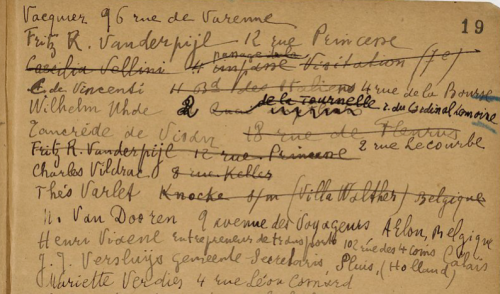 19
Vacquier 96 rue de Varenne
Fritz R. Vanderpijl 12 rue Princesse
Caecilia Vellini 4 impasse Visitation (7e)
C. de Vincenti 4 Bd des Italiens 4 rue de la Bourse
Wilhelm Uhde 2 de la Tournelle r. du Cardinal Lemoine
Tancrède de Visan 18 rue de Fleurus
2 rue Lecourbe
Fritz R. Vanderpijl 12 rue Princesse
Charles Vildrac 8 rue Keller
Théo Varlet Knocke s/m (Villa Walther) Belgique
Van Dooren 9 avenue des Voyageurs Belgique
Henri entrepreneur de transports 102 rue des 4 coins Calais
J. J. Versluijs gemeente-Secretaris, (Holland)
Mariette Verdies 4 rue Léon